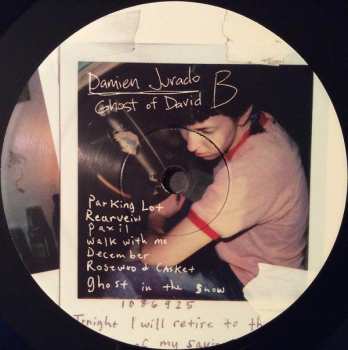 Damien Jurado
Ghost of David B
Parking Lot
Rearveiw
Paxil
walk with me
December
Rosewood Casket
ghost in the snow
1086925
Tonight I will retire to th
of my savio